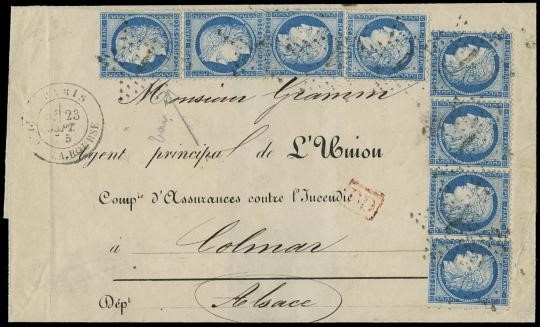 PARIS
23
SEPT.
5
Monsieur Gramm
Agent principal de L'Union
Compie d'Assurances contre l'Incendie
PD
à Colmar
Dépt Alsace